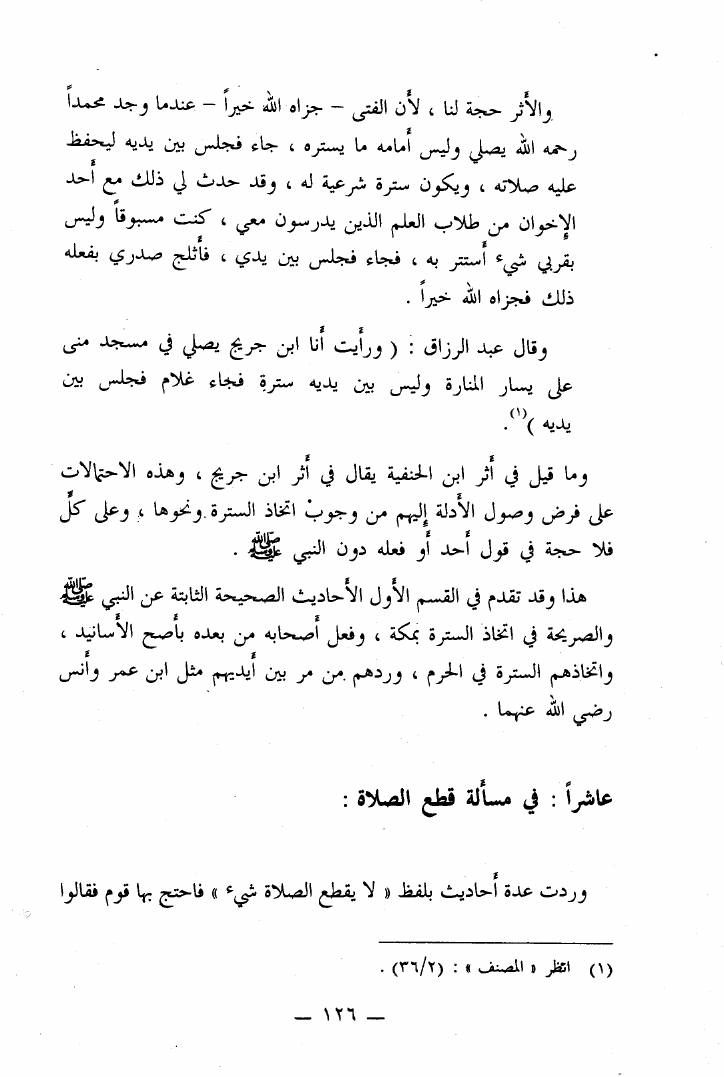 والأثر حجة لنا ، لأن الفتى – جزاه الله خيراً – عندما وجد محمداً
رحمه الله يصلي وليس أمامه ما يستره ، جاء فجلس بين يديه ليحفظ
عليه صلاته ، ويكون سترة شرعية له ، وقد حدث لي ذلك مع أحد
الإخوان من طلاب العلم الذين يدرسون معي ، كنت مسبوقاً وليس
بقربي شيء أستتر به ، فجاء فجلس بين يدي ، فأثلج صدري بفعله
ذلك فجزاه الله خيراً .
وقال عبد الرزاق : ( ورأيت أنا ابن جريج يصلي في مسجد منى
على يسار المنارة وليس بين يديه سترة فجاء غلام فجلس بين
يديه )(١).
وما قيل في أثر ابن الحنفية يقال في أثر ابن جريج ، وهذه الاحتمالات
على فرض وصول الأدلة إليهم من وجوب اتخاذ السترة ونحوها ، وعلى كلٍّ
فلا حجة في قول أحد أو فعله دون النبي ﷺ .
هذا وقد تقدم في القسم الأول الأحاديث الصحيحة الثابتة عن النبي ﷺ
والصريحة في اتخاذ السترة بمكة ، وفعل أصحابه من بعده بأصح الأسانيد ،
واتخاذهم السترة في الحرم ، وردهم من مر بين أيديهم مثل ابن عمر وأنس
رضي الله عنهما .
عاشراً : في مسألة قطع الصلاة :
وردت عدة أحاديث بلفظ « لا يقطع الصلاة شيء » فاحتج بها قوم فقالوا
(١) انظر « المصنف » : (٣٦/٢) .
— ١٢٦ —